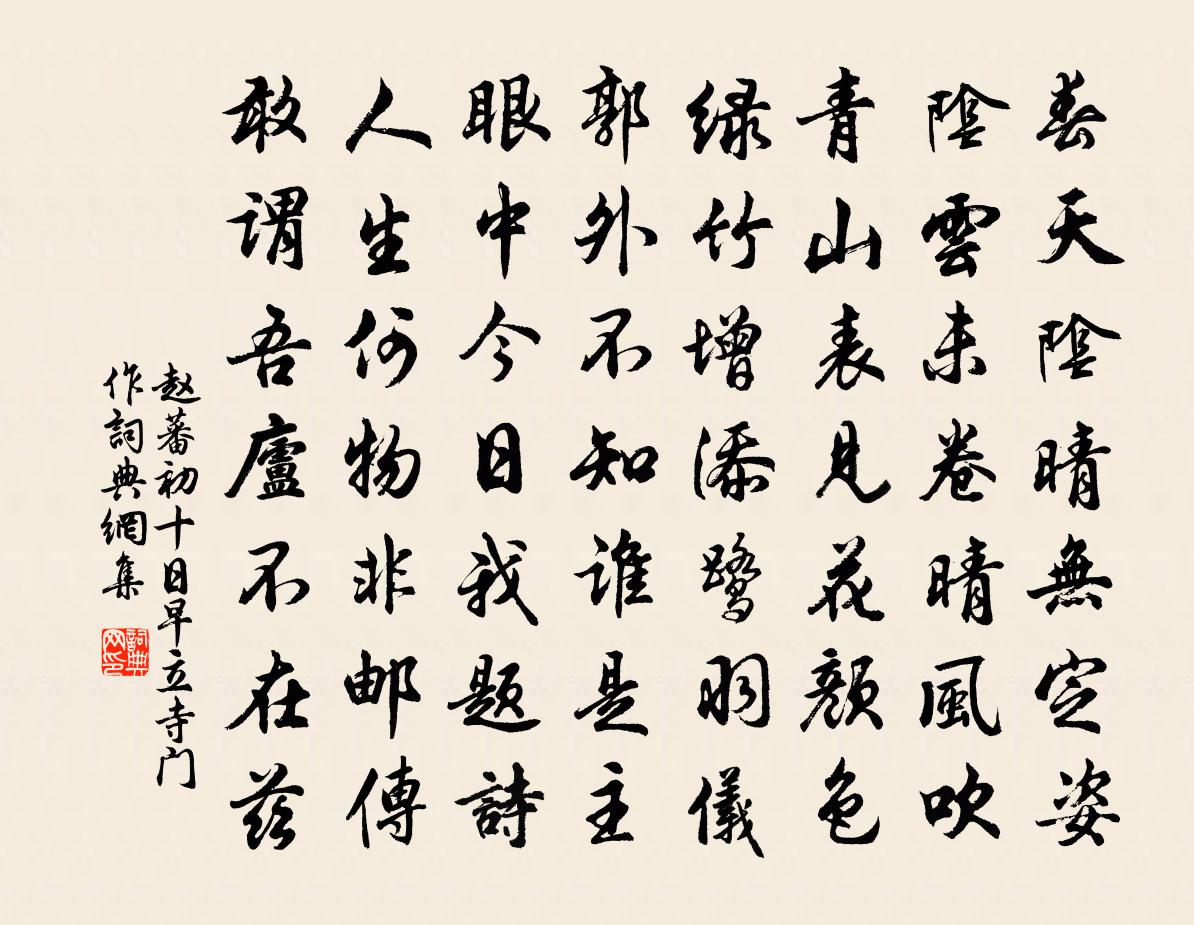 春天陰晴無定姿
陰雲未卷晴風吹
青山表見花顏色
緑竹增添鷺羽儀
郭外不知誰是主
眼中今日我題詩
人生何物非邮傳
敢謂吾廬不在茲
赵蕃初十日早立寺门
作詞典網集
詞典网印